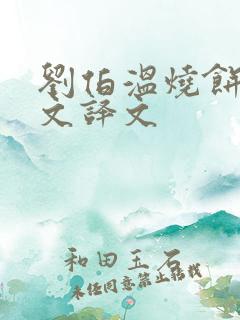 劉伯溫燒餅
文譯文
和田玉石
未经同意禁止转载